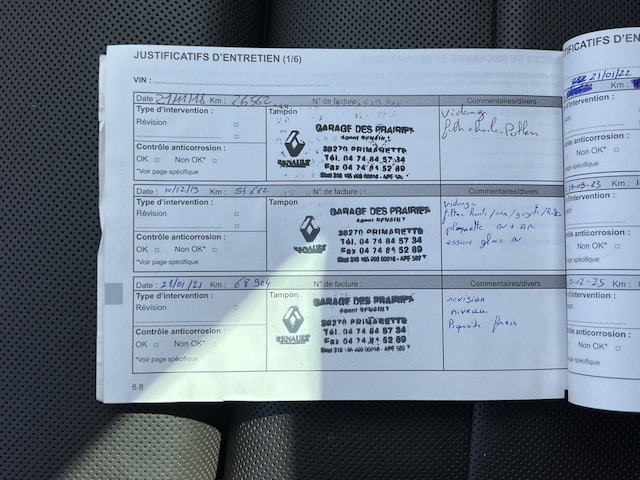 JUSTIFICATIFS D'ENTRETIEN (1/6)
VIN :
Date : 21/11/18 Km : 26562 N° de facture : Commentaires/divers
Type d'intervention :
Révision
Contrôle anticorrosion :
OK Non OK*
*Voir page spécifique
Tampon
GARAGE DES PRAIRIES
Agent RENAULT
38270 PRIMARETTE
Tél. 04 74 84 57 34
Fax 04 74 84 52 89
RENAULT
Vidange
filtre huile Pollen
Date : 10/12/19 Km : N° de facture : Commentaires/divers
Type d'intervention :
Révision
Contrôle anticorrosion :
OK Non OK*
*Voir page spécifique
Tampon
GARAGE DES PRAIRIES
Agent RENAULT
38270 PRIMARETTE
Tél. 04 74 84 57 34
Fax 04 74 84 52 89
RENAULT
Vidange
filtre huile/
plaquette AV + AR
essuie glace AV
Date : 28/01/21 Km : 68904 N° de facture : Commentaires/divers
Type d'intervention :
Révision
Contrôle anticorrosion :
OK Non OK*
*Voir page spécifique
Tampon
GARAGE DES PRAIRIES
Agent RENAULT
38270 PRIMARETTE
Tél. 04 74 84 57 34
Fax 04 74 84 52 89
RENAULT
revision
niveau
frein
6.8
TIFICATIFS D'EN
21/01/22
Km :
d'intervention :
ôle anticorrosion :
Non OK*
page spécifique
-09-23 Km :
d'intervention :
on
ôle anticorrosion :
Non OK*
page spécifique
-02-25 Km :
d'intervention :
on
anticorrosion :
Non OK*
page spécifique